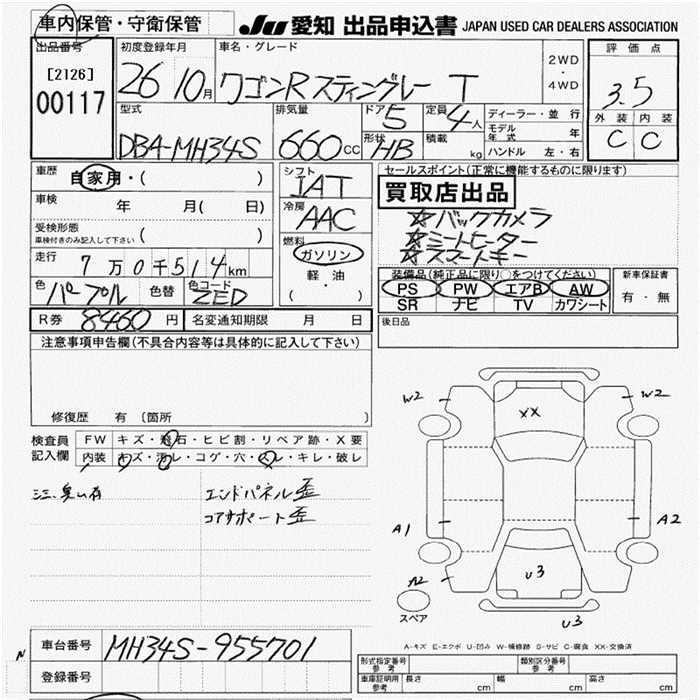 車内保管・守衛保管
JU 愛知 出品申込書 JAPAN USED CAR DEALERS ASSOCIATION
出品番号
[2126]
00117
初度登録年月
26 10月
車名・グレード
ワゴンRスティングレー T
2WD
・
4WD
評価点
3.5
外装 内装
C C
型式
DBA-MH34S
排気量
660cc
ドア 5
定員 4人
形状 HB
積載 kg
ディーラー・並行
モデル年式 年
ハンドル 左・右
車歴
自家用・( )
車検 年 月( 日)
受検形態
車検付きのみ記入して下さい ( )
走行 7万0千514km
色 パープル 色替 色コード ZED
シフト
IAT
冷房
AAC
燃料
ガソリン
軽・油
( ・ )
セールスポイント(正常に機能するものに限ります)
買取店出品
☆バックカメラ
☆シートヒーター
☆スマートキー
装備品(純正品に限り○をつけてください)
PS PW エアB AW
SR ナビ TV カワシート
新車保証書
有・無
R券 8460円 名変通知期限 月 日
後日品
注意事項申告欄(不具合内容等は具体的に記入して下さい)
修復歴 有(箇所 )
検査員記入欄
FW キズ・飛石・ヒビ割・リペア跡・X要
内装 キズ・汚レ・コゲ・穴・スレ・キレ・破レ
エンドパネル歪
コアサポート歪
W2 W2
XX
A1 A2
A2 U3
U3
スペア
A-キズ E-エクボ U-凹み W-補修跡 S-サビ C-腐食 XX-交換済
車台番号 MH34S-955701
登録番号
N
形式指定番号 参考 類別区分番号 参考
車庫証明用 参考 長さ cm 幅 cm 高さ cm